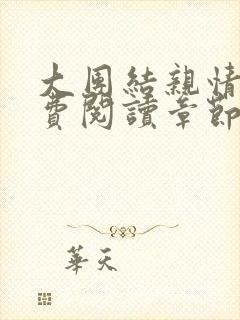 大團結親情
費閱讀章節
華天